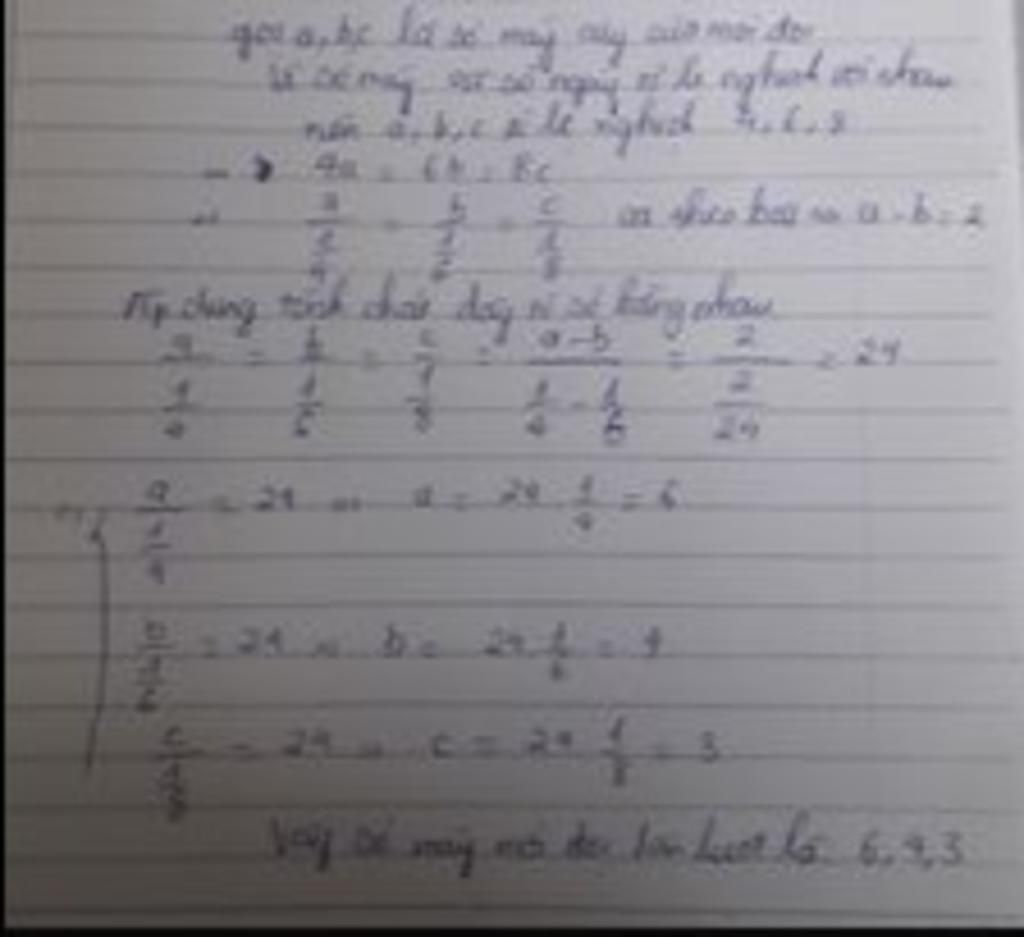 gọi a, b, c là số máy cày của mỗi đội
Vì số máy và số ngày tỉ lệ nghịch với nhau
nên a, b, c tỉ lệ nghịch 4, 6, 8
=> 4a = 6b = 8c
=> a/(1/4) = b/(1/6) = c/(1/8) và theo bài ra a - b = 2
Áp dụng tính chất dãy tỉ số bằng nhau
a/(1/4) = b/(1/6) = c/(1/8) = (a-b)/(1/4 - 1/6) = 2/(2/24) = 24
=> a/(1/4) = 24 => a = 24 . 1/4 = 6
b/(1/6) = 24 => b = 24 . 1/6 = 4
c/(1/8) = 24 => c = 24 . 1/8 = 3
Vậy số máy mỗi đội lần lượt là 6, 4, 3